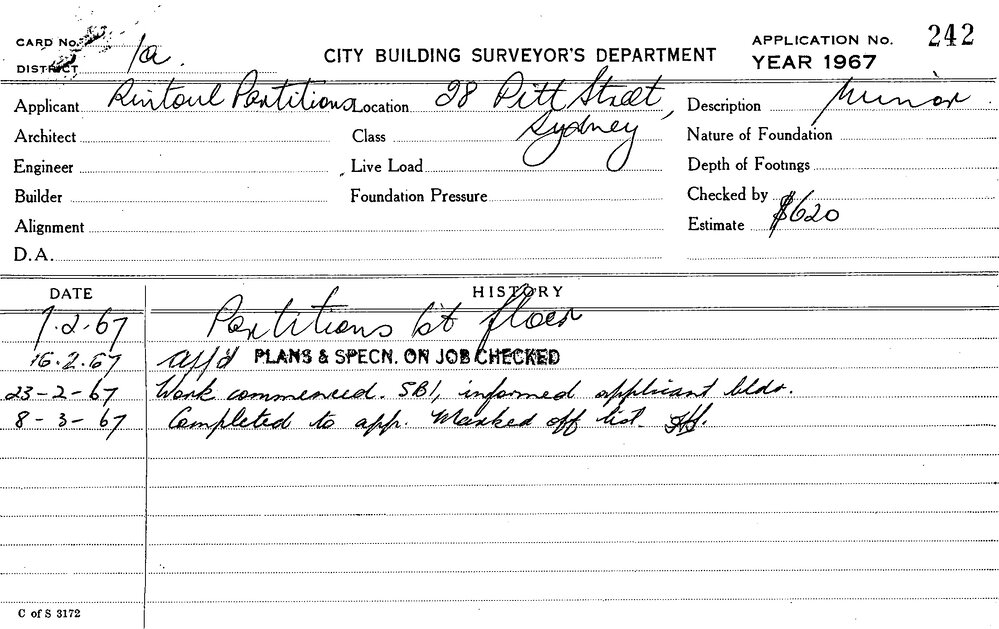 CARD No.
DISTRICT 1a.
CITY BUILDING SURVEYOR'S DEPARTMENT
APPLICATION No. 242
YEAR 1967
Applicant Rintoul Partitions Location 28 Pitt Street, Description Minor
Architect Class Sydney Nature of Foundation
Engineer Live Load Depth of Footings
Builder Foundation Pressure Checked by
Alignment Estimate $620
D.A.
DATE HISTORY
7.2.67 Partitions 1st floor
16.2.67 app'd PLANS & SPECN. ON JOB CHECKED
23-2-67 Work commenced. SB1, informed applicant bldr.
8-3-67 Completed to app. Marked off list.
C of S 3172